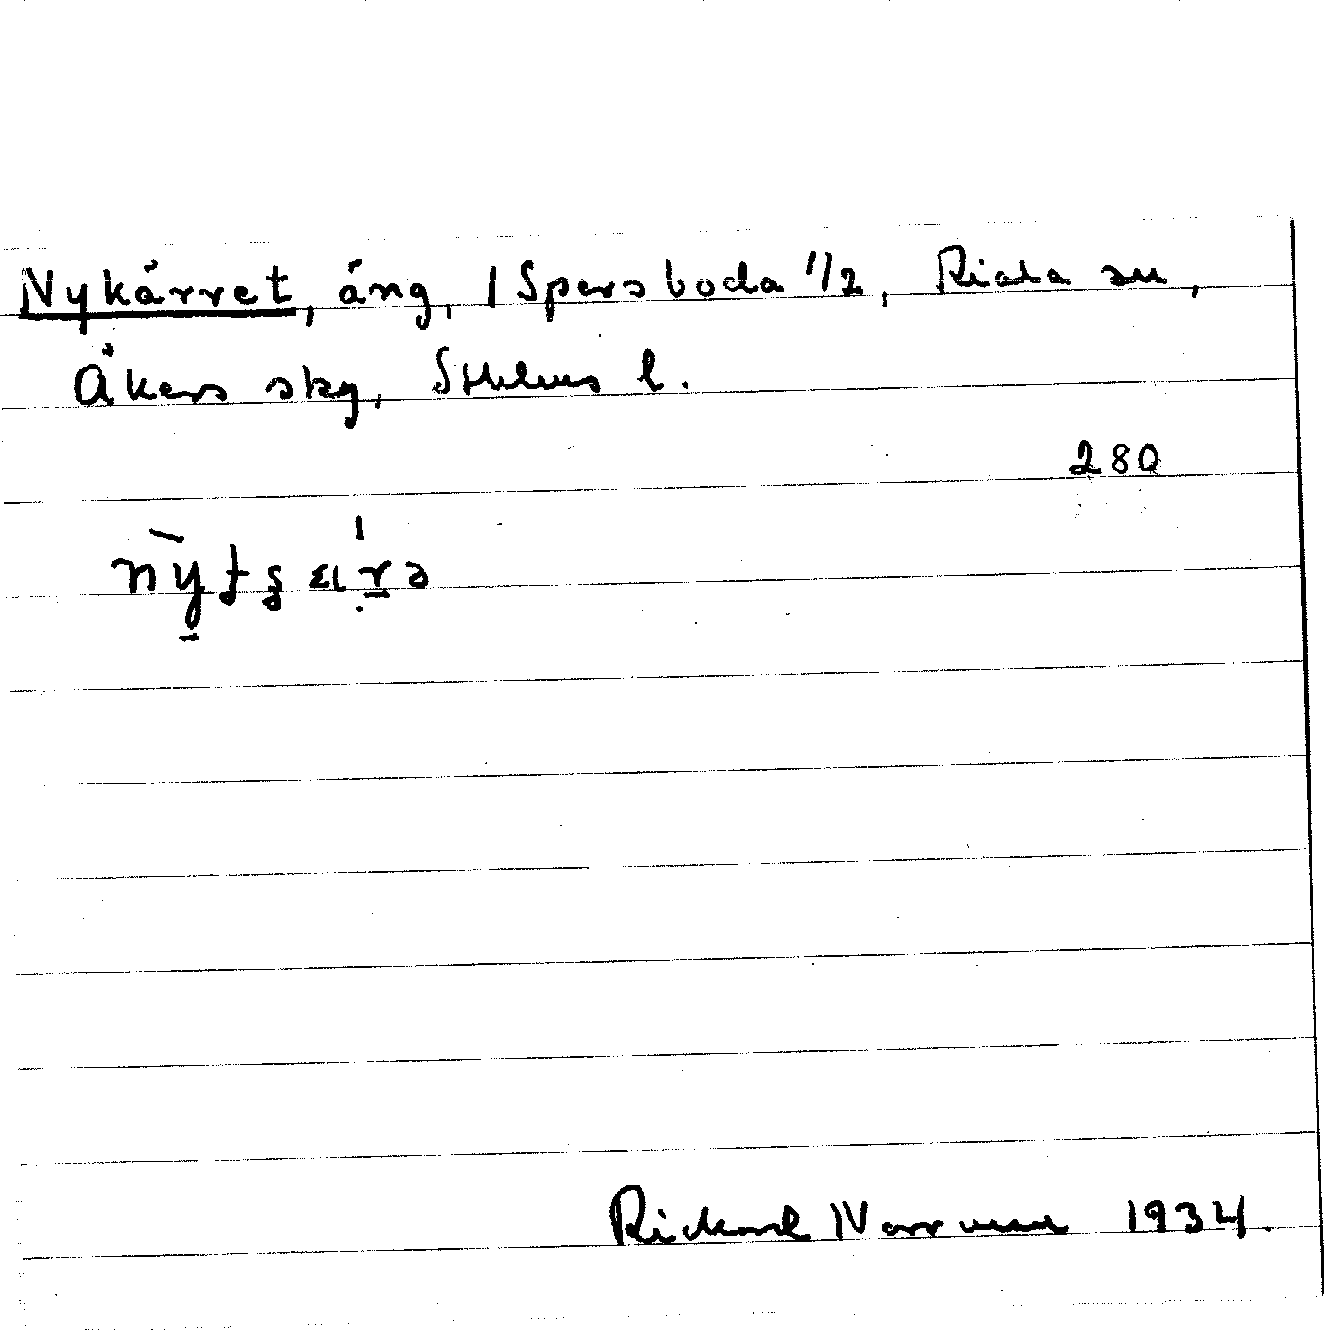 Nykärret, äng, 1 Spersboda 1/2, Riala sn,
Åkers skg, Sthlms l.
280
Rickard Norrman 1934.